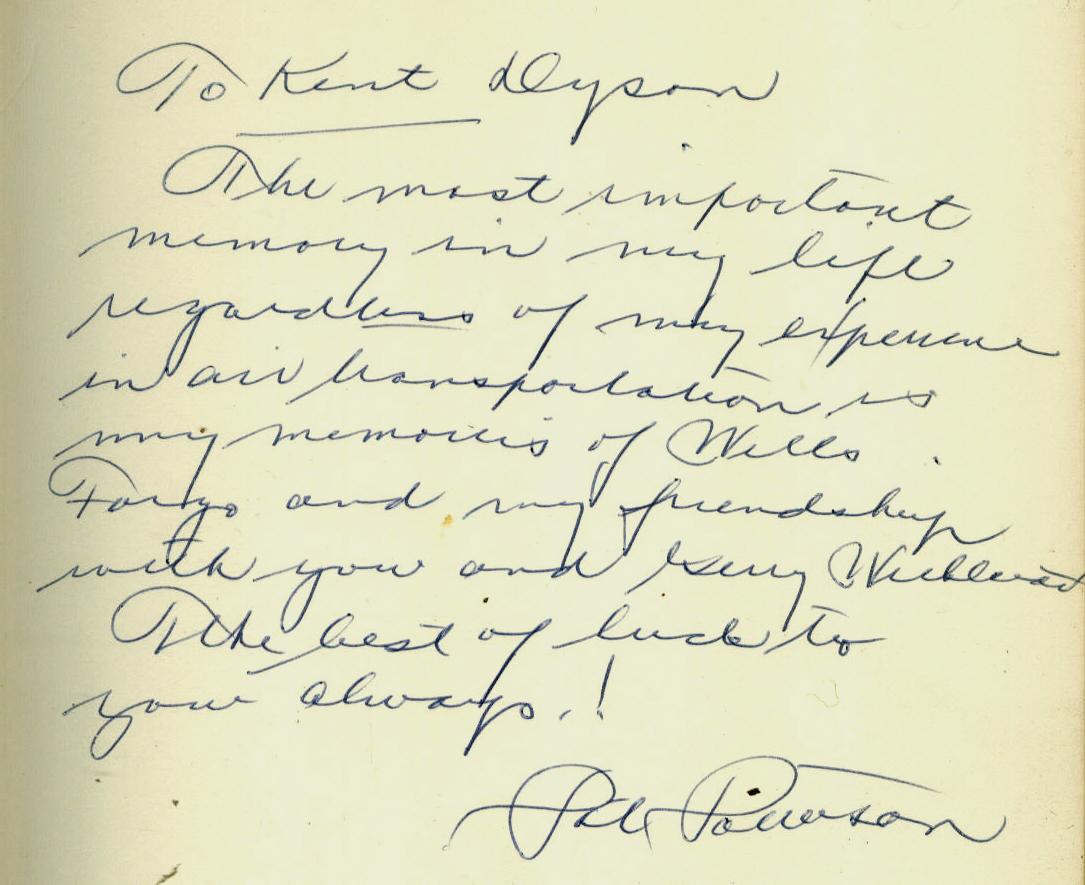 To Kent Dyson
The most important
memory in my life
regardless of my experience
in air transportation is
my memories of Wells
Fargo and my friendship
with you and Gerry
The best of luck to
you always!
Pat Patterson